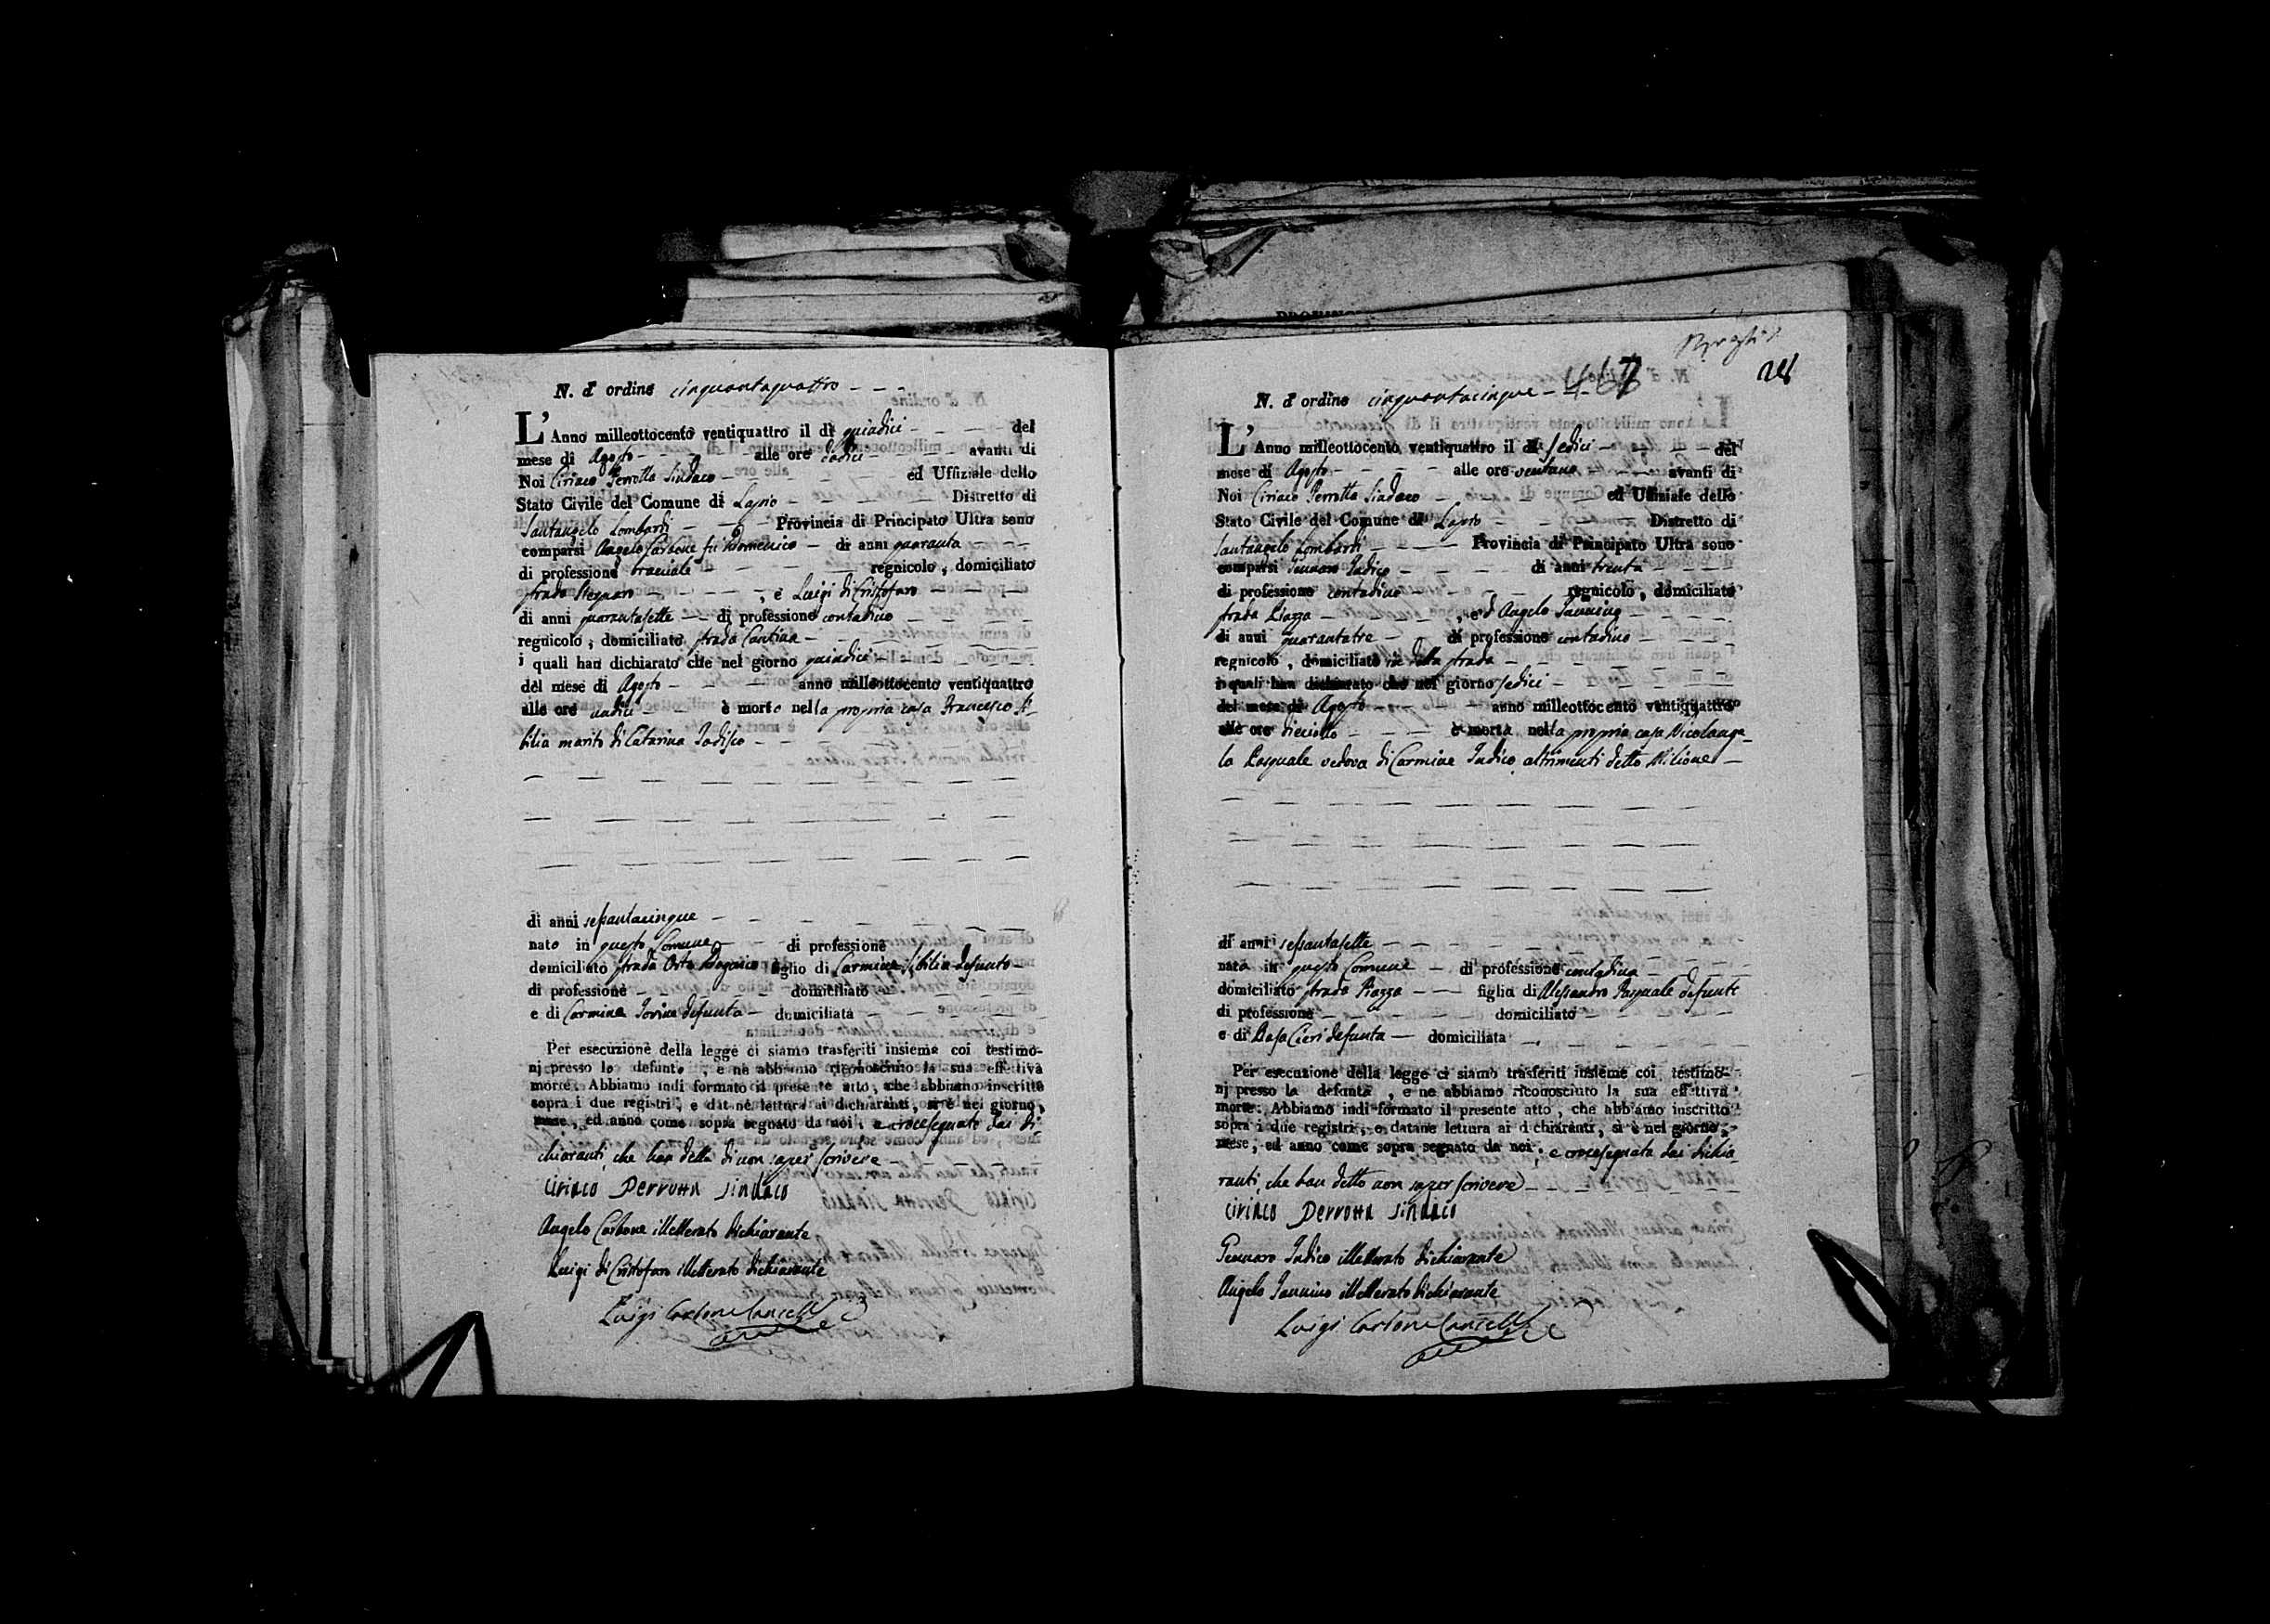 N. d' ordine cinquantaquattro
L' Anno milleottocento ventiquattro il dì quindici del
mese di Agosto alle ore dodici avanti di
Noi Ciriaco Perrotta Sindaco ed Uffiziale dello
Stato Civile del Comune di Lapio Distretto di
Santangelo Lombardi Provincia di Principato Ultra sono
comparsi Angelo Carbone fu Domenico di anni quaranta
di professione bracciale regnicolo, domiciliato
strada , e Luigi di Cristofaro
di anni quarantasette di professione contadino
regnicolo, domiciliato strada Cantina
i quali han dichiarato che nel giorno quindici
del mese di Agosto anno milleottocento ventiquattro
alle ore undici è morto nella propria casa Francesco Si-
bilia marito di Catarina Jodisco
di anni sessantacinque
nato in questo Comune di professione
domiciliato strada Orto figlio di Carmine Sibilia defunto
di professione domiciliato
e di Carmina defunta domiciliata
Per esecuzione della legge ci siamo trasferiti insieme coi testimo-
nj presso lo defunto, e ne abbiamo riconosciuto la sua effettiva
morte. Abbiamo indi formato il presente atto, che abbiamo inscritto
sopra i due registri, e datane lettura ai dichiaranti, si è nel giorno,
mese, ed anno come sopra segnato da noi. e crocesegnato dai di-
chiaranti, che han detto di non saper scrivere
Ciriaco Perrotta Sindaco
Angelo Carbone illetterato dichiarante
Luigi di Cristofaro illetterato dichiarante
Luigi Carbone Cancell
467
N. d' ordine cinquantacinque
L' Anno milleottocento ventiquattro il dì sedici del
mese di Agosto alle ore ventuno avanti di
Noi Ciriaco Perrotta Sindaco ed Uffiziale dello
Stato Civile del Comune di Lapio Distretto di
Santangelo Lombardi Provincia di Principato Ultra sono
comparsi Gennaro Judico di anni trenta
di professione contadino regnicolo, domiciliato
strada Piazza , ed Angelo Jannino
di anni quarantatre di professione contadino
regnicolo, domiciliato in detta strada
i quali han dichiarato che nel giorno sedici
del mese di Agosto anno milleottocento ventiquattro
alle ore dieciotto è morta nella propria casa Nicolange-
la Pasquale vedova di Carmine Judico altrimenti detto
di anni sessantasette
nata in questo Comune di professione contadina
domiciliato strada Piazza figlia di Alessandro Pasquale defunto
di professione domiciliato
e di Cieri defunta domiciliata
Per esecuzione della legge ci siamo trasferiti insieme coi testimo-
nj presso la defunta, e ne abbiamo riconosciuto la sua effettiva
morte. Abbiamo indi formato il presente atto, che abbiamo inscritto
sopra i due registri, e datane lettura ai dichiaranti, si è nel giorno,
mese, ed anno come sopra segnato da noi. e crocesegnato dai dichia-
ranti, che han detto non saper scrivere
Ciriaco Perrotta Sindaco
Gennaro Judico illetterato dichiarante
Angelo Jannino illetterato dichiarante
Luigi Carbone Cancell